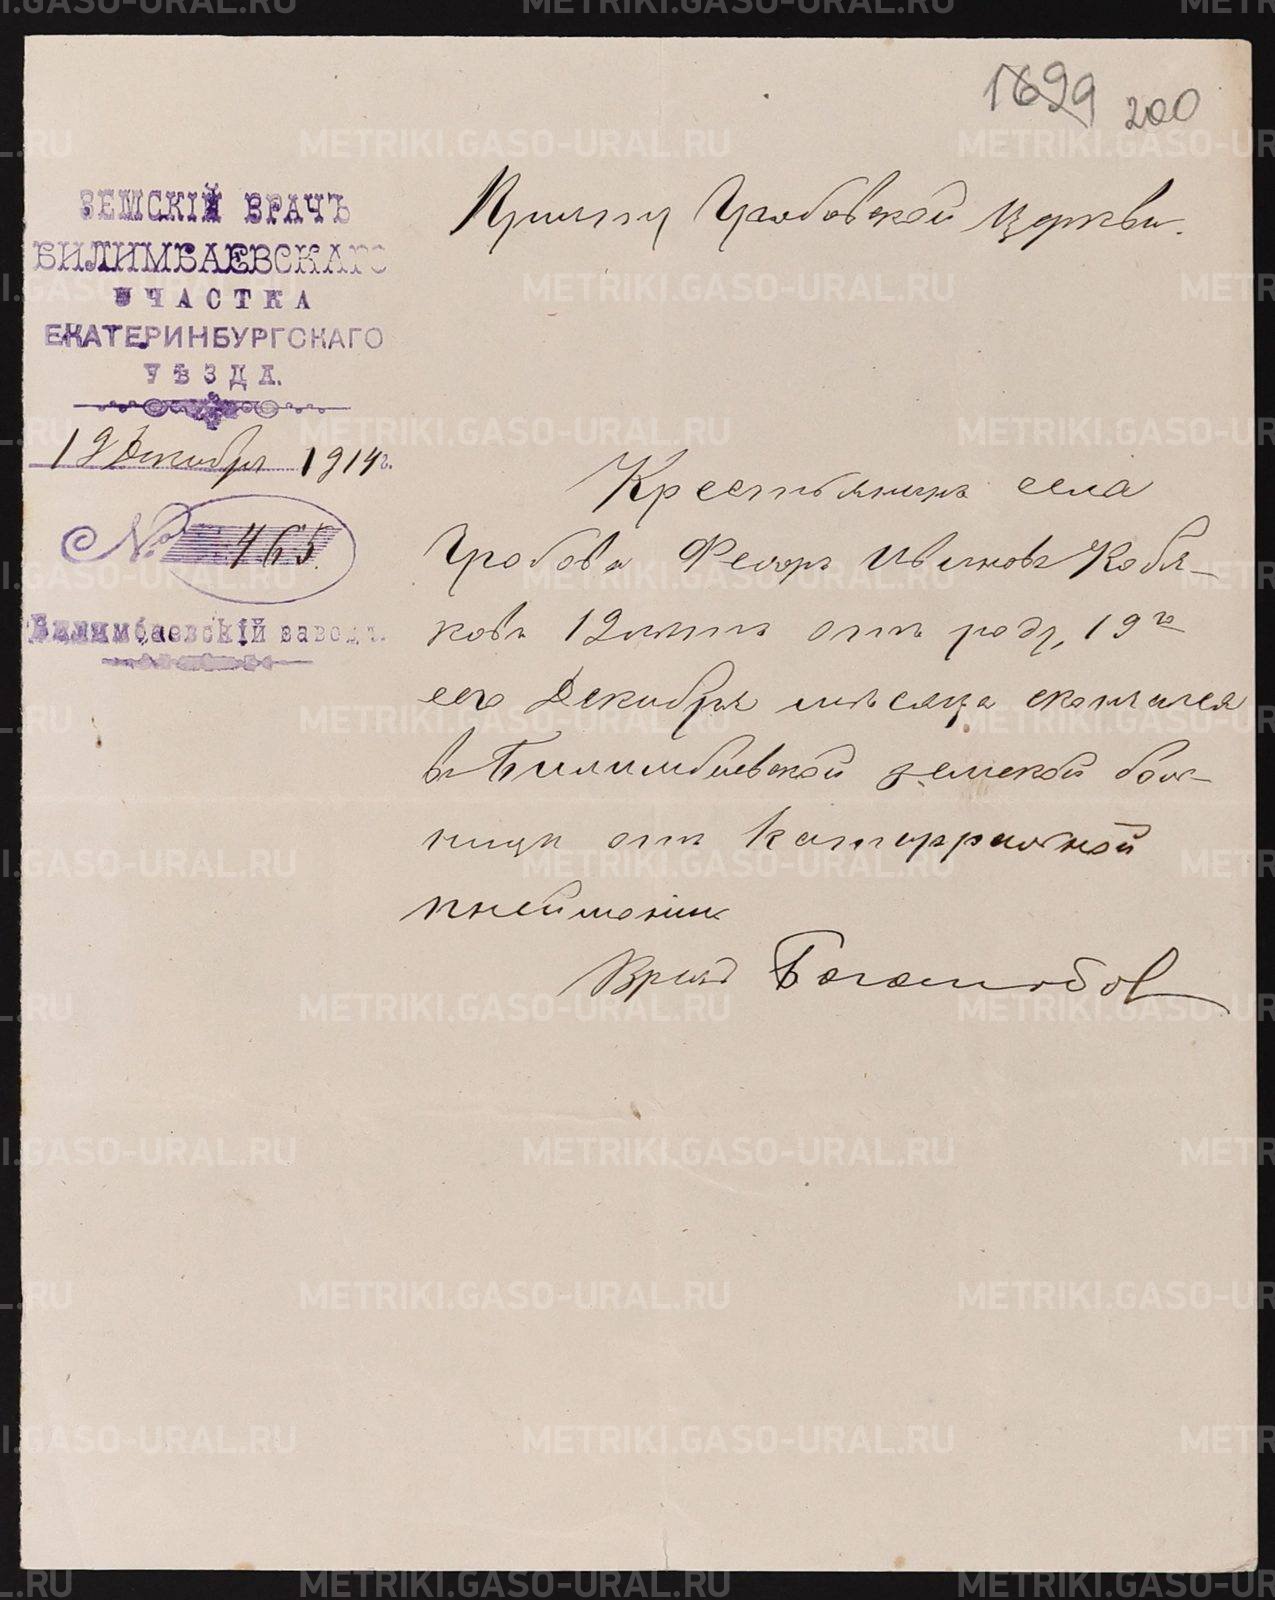 1699 200
ЗЕМСКІЙ ВРАЧЪ
БИЛИМБАЕВСКАГО
УЧАСТКА
ЕКАТЕРИНБУРГСКАГО
УѢЗДА.
19 Декабря 1914 г.
№ 465.
Билимбаевскій заводъ.
Причту Гробовской Церкви.
Крестьянинъ села
Гробова Федоръ Ивановъ Кобя-
ковъ 12 лѣтъ отъ роду, 19го
сего Декабря мѣсяца скончался
въ Билимбаевской земской боль-
ницѣ отъ катарральной
пнеймоніи
Врачъ
METRIKI.GASO-URAL.RU